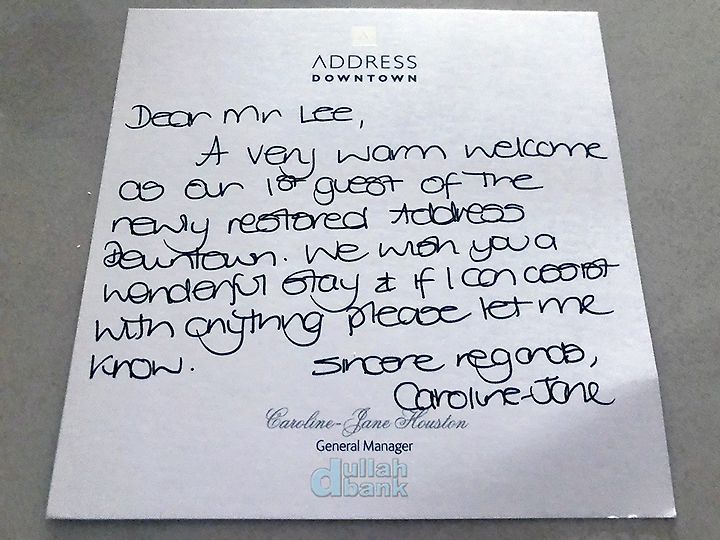 ADDRESS
DOWNTOWN
Dear Mr Lee,
A very warm welcome
as our 1st guest of the
newly restored Address
Downtown. We wish you a
wonderful stay & if I can assist
with anything please let me
know.
Sincere regards,
Caroline-Jane
Caroline-Jane Houston
General Manager
dullah
bank